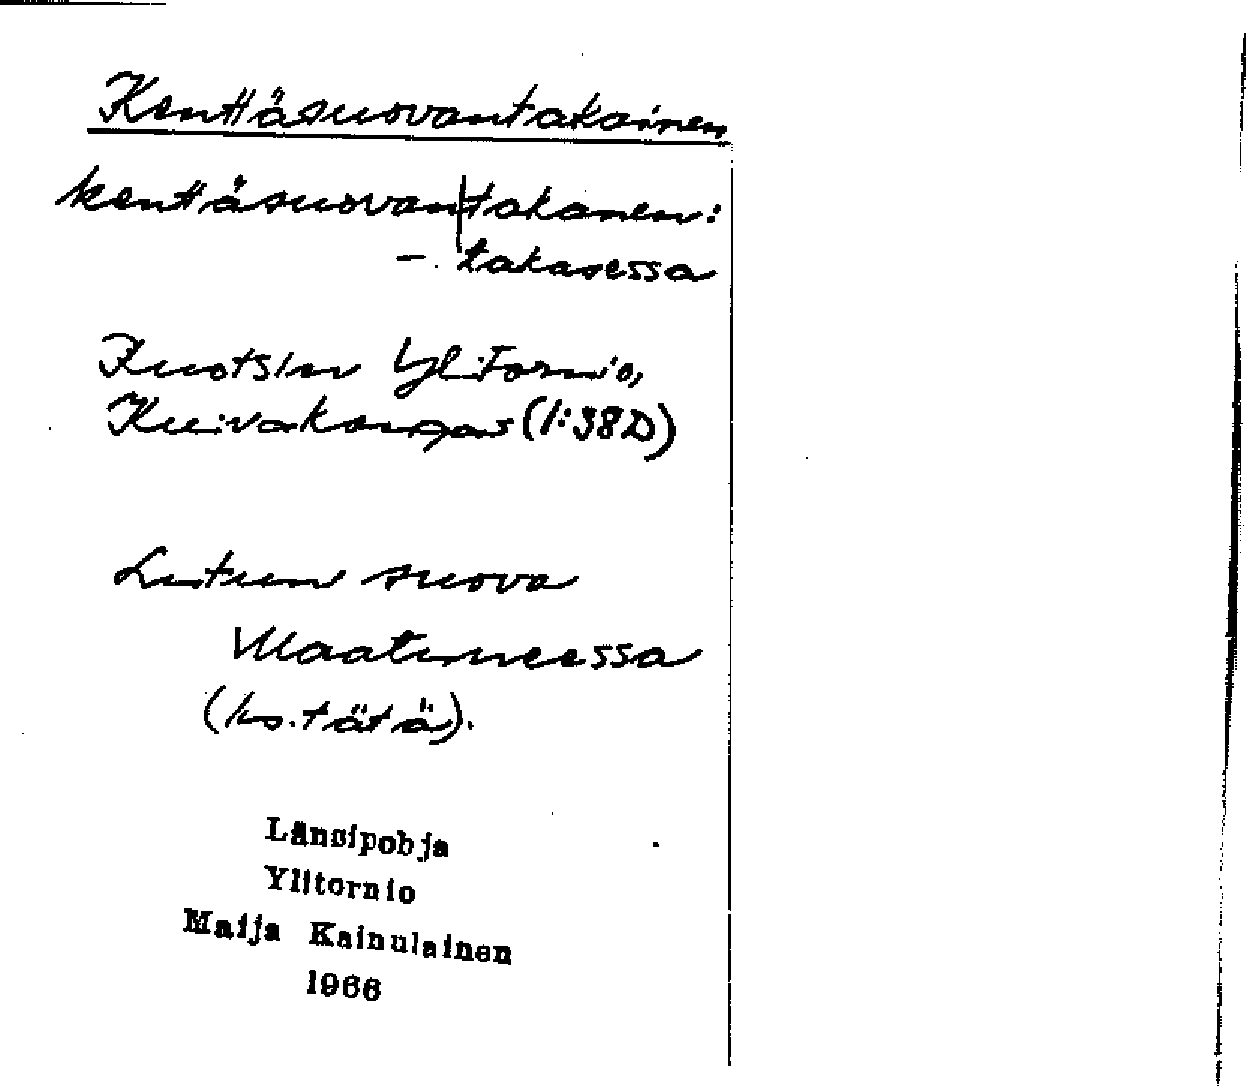 Kenttäsuovantakainen
kenttäsuovan|takanen:
- takasessa
Ruotsin Ylitornio,
Kuivakangas (1:38D)
Lutun suova
Maatimeessa
(ks. tätä).
Länsipohja
Ylitornio
Maija Kainulainen
1966